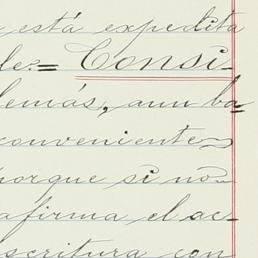 está expedita
le:= Consi-
lemás, aun ba=
conveniente
porque si no
afirma el ac-
scritura con